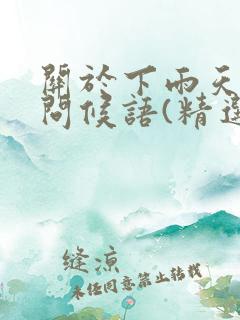 關於下雨天
問候語(精選
縫涼
未任同意禁止转载